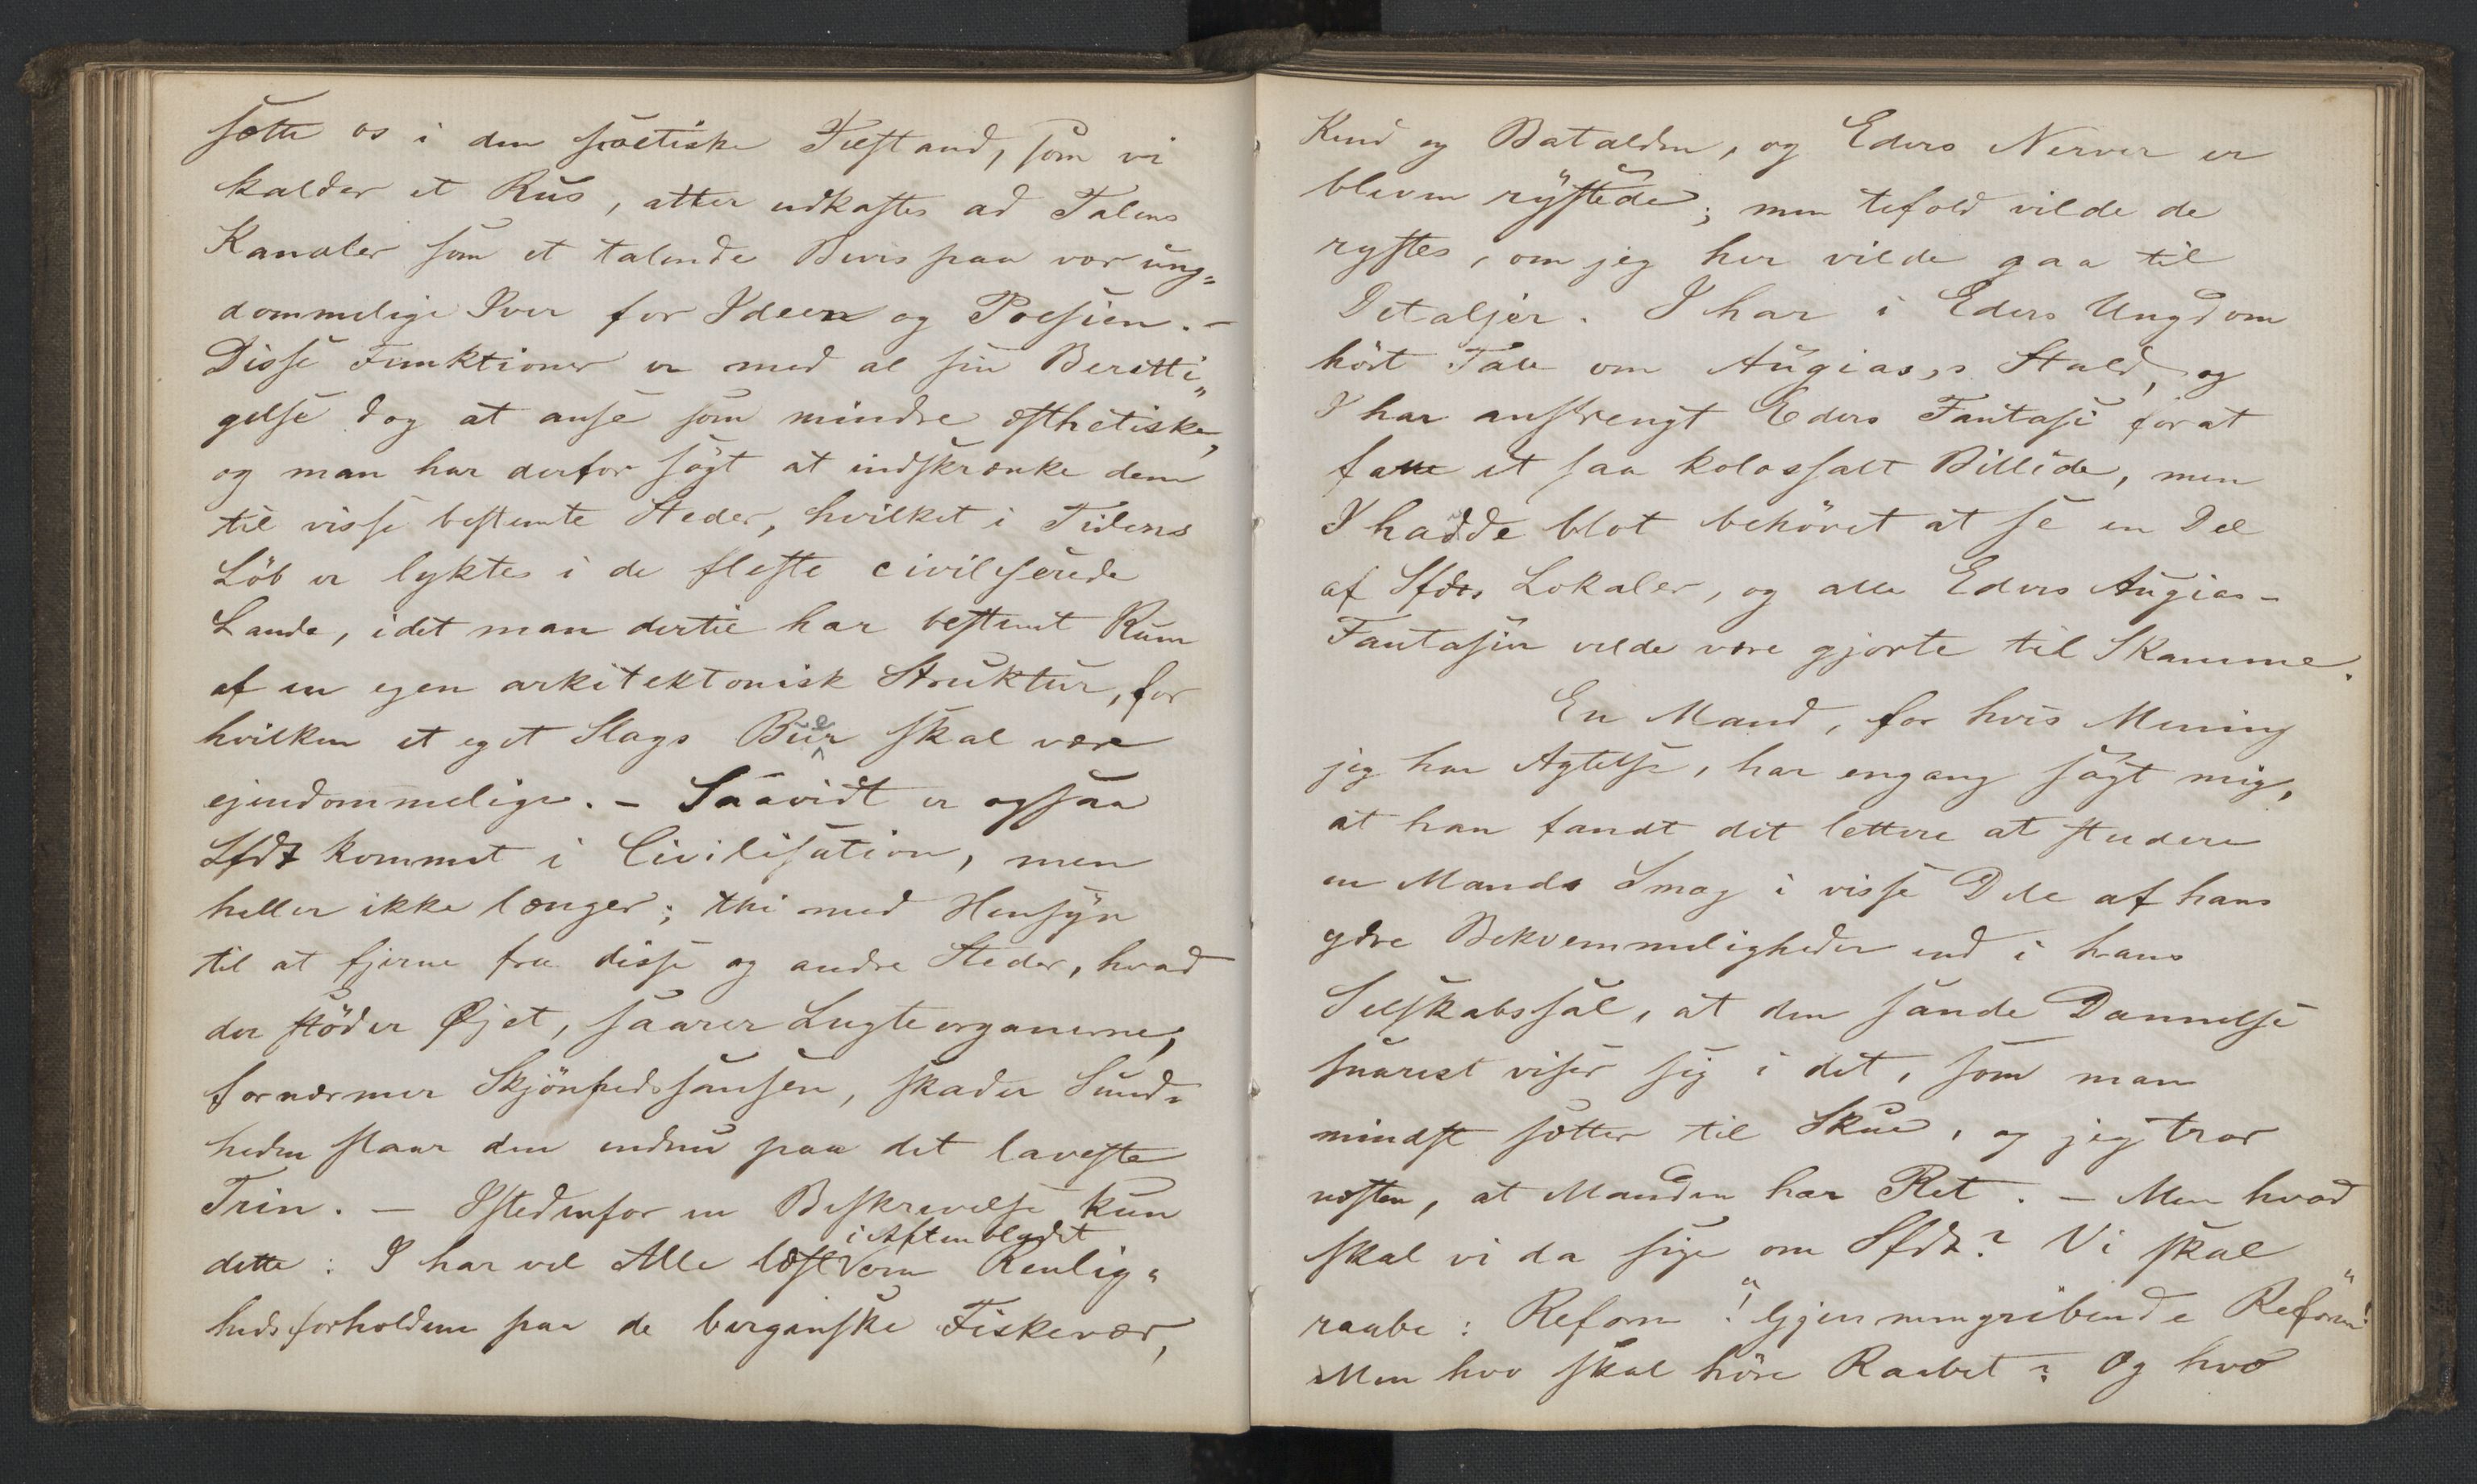 sætte os i den poetiske Tilstand, som vi
kalder et Rus, atter udkastes ad Talens
Kanaler som et talende Bevis paa vor ung=
dommelige Iver for Ideen og Poesien. –
Disse Funktioner er med al sin Beretti=
gelse dog at anse som mindre æsthetiske,
og man har derfor søgt at indskrænke dem
til visse bestemte Steder, hvilket i Tidens
Löb er lyktes i de fleste civiliserede
Lande, idet man dertil har bestemt Rum
af en egen arkitektonisk Struktur, for
hvilken et eget Slags Buer skal være
ejendommelige. – Saavidt er ogsaa
Sfdt kommet i Civilisation, men
heller ikke længer; thi med Hensyn
til at fjerne fra disse og andre Steder, hvad
der stöder Øjet, saarer Lugteorganerne,
fornærmer Skjönhedssansen, skader Sund=
heden staar den endnu paa det laveste
Trin. – Istedenfor en Beskrivelse kun
i Aftenbladet
dette: I har vel Alle læst om Renlig=
hedsforholdene paa de bergenske Fiskevær,
Kind og Batalden, og Eders Nerver er
bleven rystede; men tifold vilde de
rystes, om jeg her vilde gaa til
Detaljer. I har i Eders Ungdom
hört Tale om Augias's Stald, og
I har anstrengt Eders Fantasi for at
fatte et saa kolossalt Billede, men
I hadde blot behövet at se en Del
af Sfdts Lokaler, og alle Eders Augias-
Fantasier vilde være gjorte til Skamme.
En Mand, for hvis Mening
jeg har Agtelse, har engang sagt mig,
at han fandt det lettere at studere
en Mands Smag i visse Dele af hans
ydre Bekvemmeligheder end i hans
Selskabssal, at den sande Dannelse
snarest viser sig i det, som man
mindst sætter til Skue, og jeg tror
næsten, at Manden har Ret. – Men hvad
skal vi da sige om Sfdt? Vi skal
raabe: Reform! "Gjennemgribende Reform!"
Men hvo skal höre Raabet? Og hvo